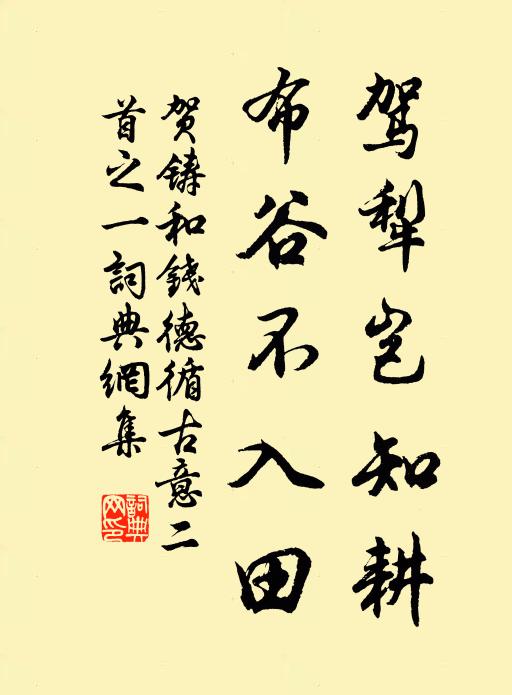 驾犁岂知耕
布谷不入田
贺铸和錢德循古意二
首之一詞典網集
詞典
网印